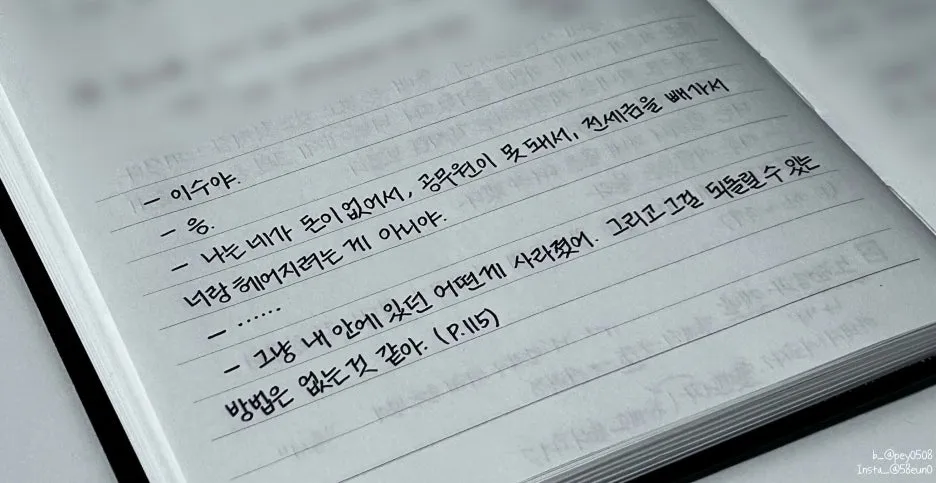 - 이수야.
- 응.
- 나는 네가 돈이 없어서, 공무원이 못 돼서, 전세금을 빼가서
너랑 헤어지려는 게 아니야.
- ......
- 그냥 내 안에 있던 어떤게 사라졌어. 그리고 그걸 되돌릴 수 있는
방법은 없는 것 같아. (P.115)
b_@pey0508
Insta_@58eun0